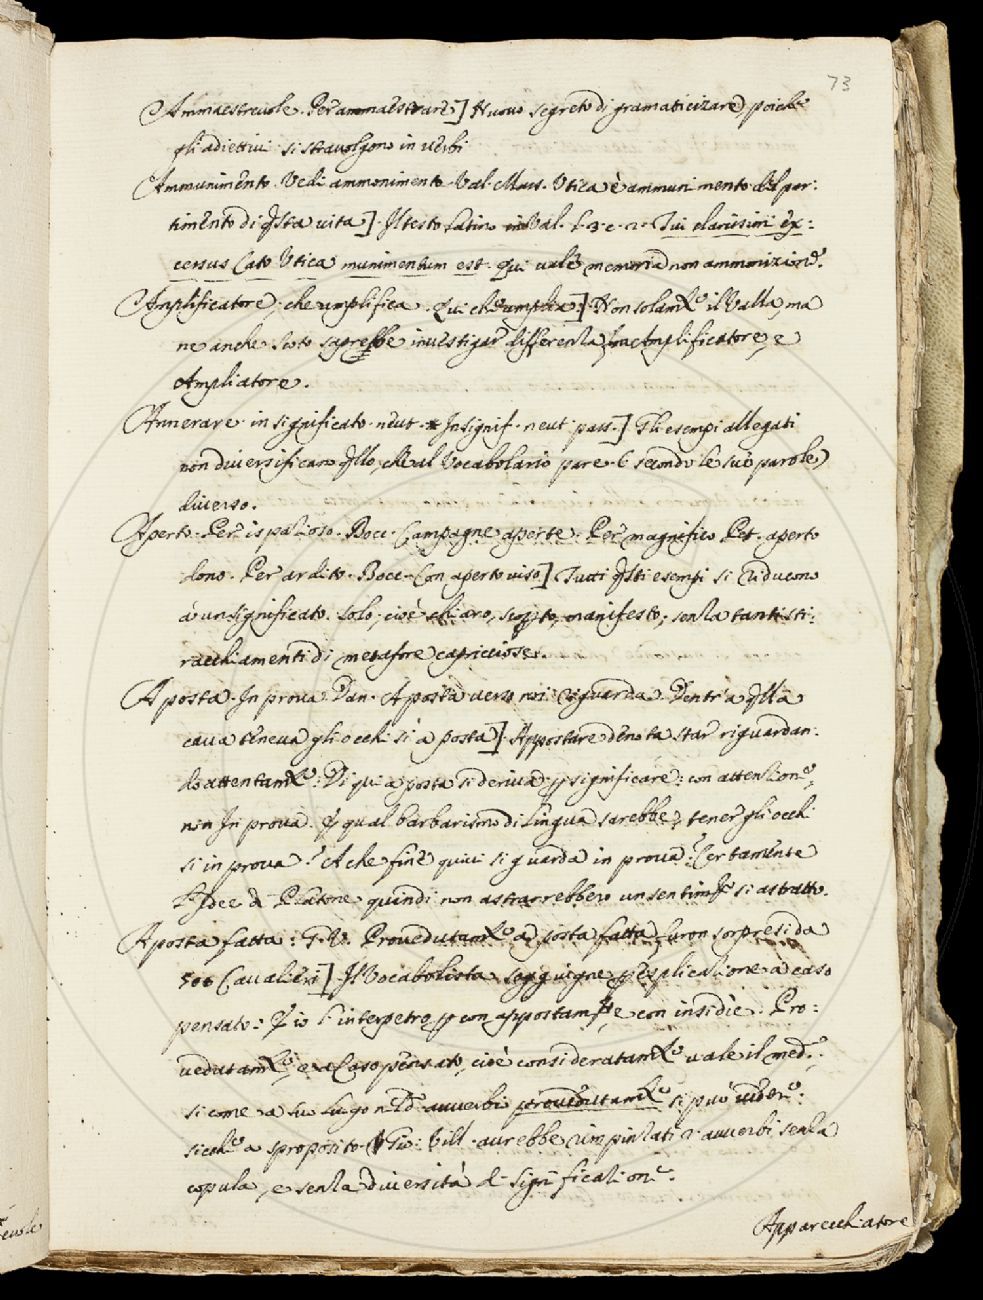 73
Ammaestrevole. Per ammaestrare] Nuovo segreto di gramaticizare, poiche
gli adiettivi si stravolgono in verbi
Ammunimento. Vedi ammonimento. Val. Mass. Utica è ammunimento del par:
timento di qsta vita] Il testo Latino in Val. l. 3. c. 2. Tui clarissimi ex:
cessus Cato Utica munimentum est. Qui vale memoria non ammonizione.
Amplificatore, che amplifica. Qui che amplia] Non solam.te il Valla, ma
ne anche Scoto saprebbe investigar differenza, tra Amplificatore, e
Ampliatore.
Annerare in significato neut. Insignif. neut. pass.] Gli esempi allegati
non diversificano qllo, che al Vocabolario pare (secondo le sue parole)
diverso.
Aperto. Per ispazioso. Bocc. Campagne aperte. Per magnifico Pet. aperto
dono. Per ardito. Bocc. Con aperto viso] Tutti qsti esempi si riducono
à un significato solo, cioè chiaro, scopto, manifesto, senza tanti sti:
racchiamenti di metafore capricciose.
Aposta. In prova. Dan. Aposta verso noi riguarda. Dentr'a qlla
cava teneva gli occhi si à posta] Appostare denota star riguardan:
do attentam.te: Di qui aposta si deriva p significare: con attenzione,
non In prova. P qual barbarismo di lingua sarebbe, tener gli occhi
si in prova? A che fine quivi si guarda in prova? Certamente
l'Idee di Platone quindi non astrarrebbero un sentim.to si astratto.
Aposta fatta: G. V. Provedutam.te à posta fatta furon sorpresi da
500 Cavalieri] Il Vocabolista soggiugne p esplicazione a caso
pensato: P io l'interpetro, p con appostam.to, e con insidie. Pro:
vedutam.te, e a Caso pensato, cioè consideratam.te vale il med.o:
si come a suo luogo nell' avverbi provedutam.te si può vedere:
sicche a sproposito Gio: Vill. avrebbe rimpinzati 2 avverbi senza
copula, e senza diversità di significatione.
Apparecchiatore